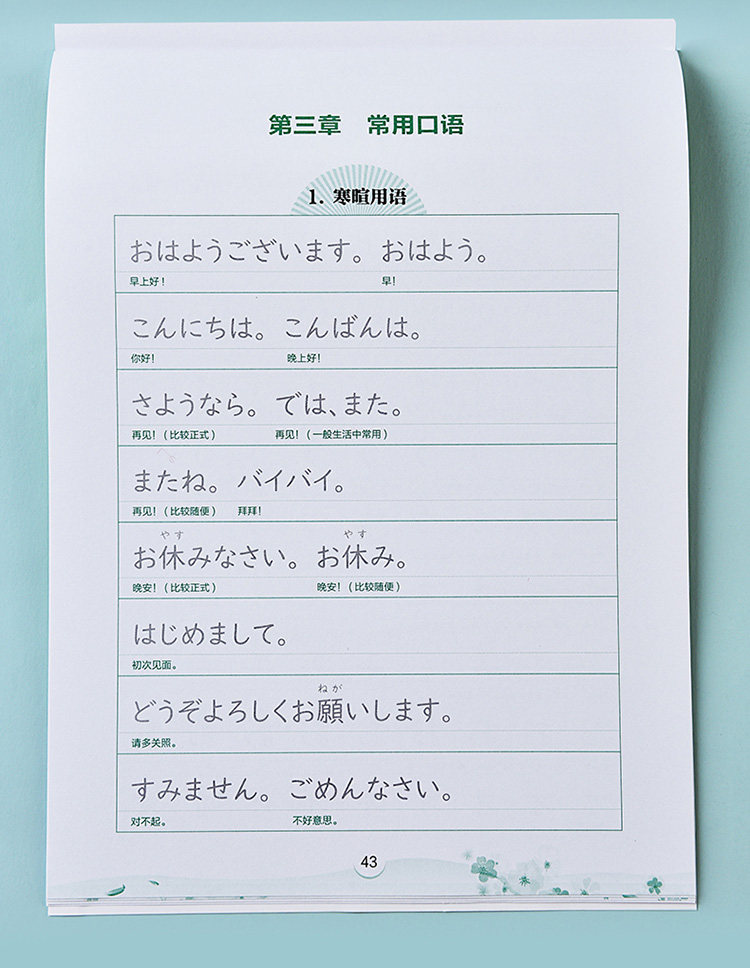 第三章 常用口语
1. 寒暄用语
おはようございます。 おはよう。
早上好! 早!
こんにちは。 こんばんは。
你好! 晚上好!
さようなら。 では、また。
再见!(比较正式) 再见!(一般生活中常用)
またね。 バイバイ。
再见!(比较随便) 拜拜!
やす やす
お休みなさい。 お休み。
晚安!(比较正式) 晚安!(比较随便)
はじめまして。
初次见面。
ねが
どうぞよろしくお願いします。
请多关照。
すみません。 ごめんなさい。
对不起。 不好意思。
43